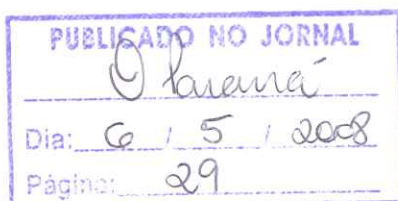 PUBLICADO NO JORNAL
O Paraná
Dia: 6 / 5 / 2008
Página: 29